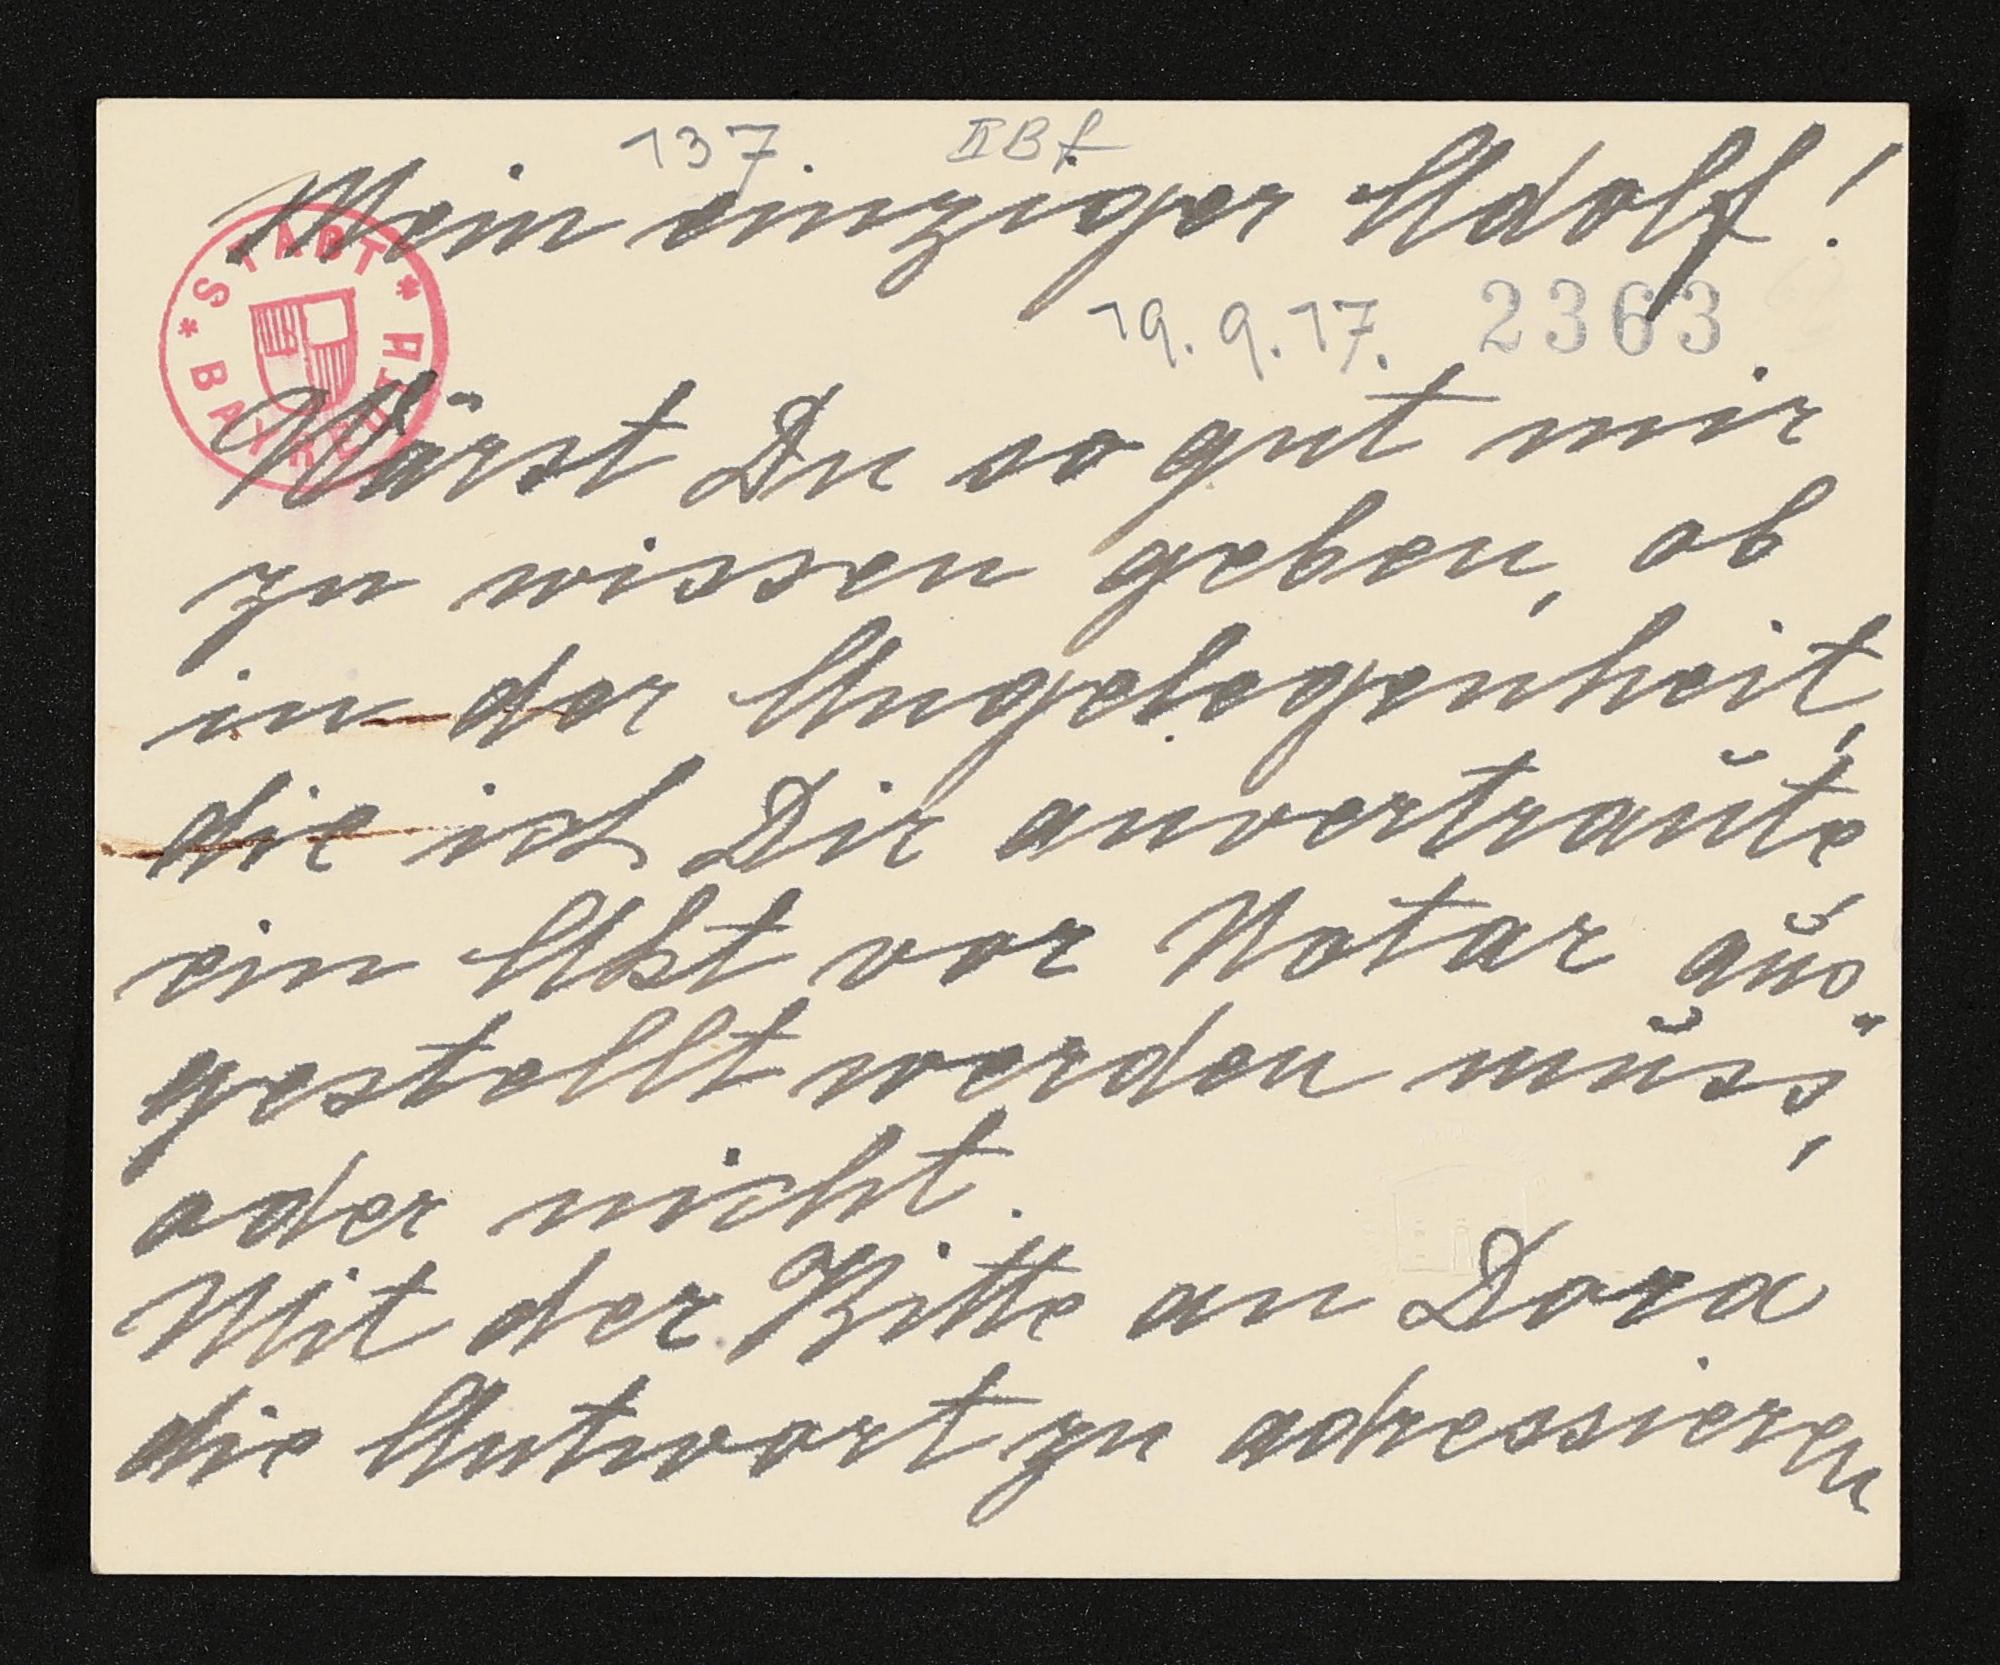 137. II Bf
Mein einziger Adolf!
19.9.17. 2363
* STADT * ARCHIV
BAYREUTH
Wärst Du so gut mir
zu wissen geben, ob
in der Angelegenheit,
die ich Dir anvertraute,
ein Akt vor Notar aus-
gestellt werden muss,
oder nicht.
Mit der Bitte an Dora
die Antwort zu adressieren